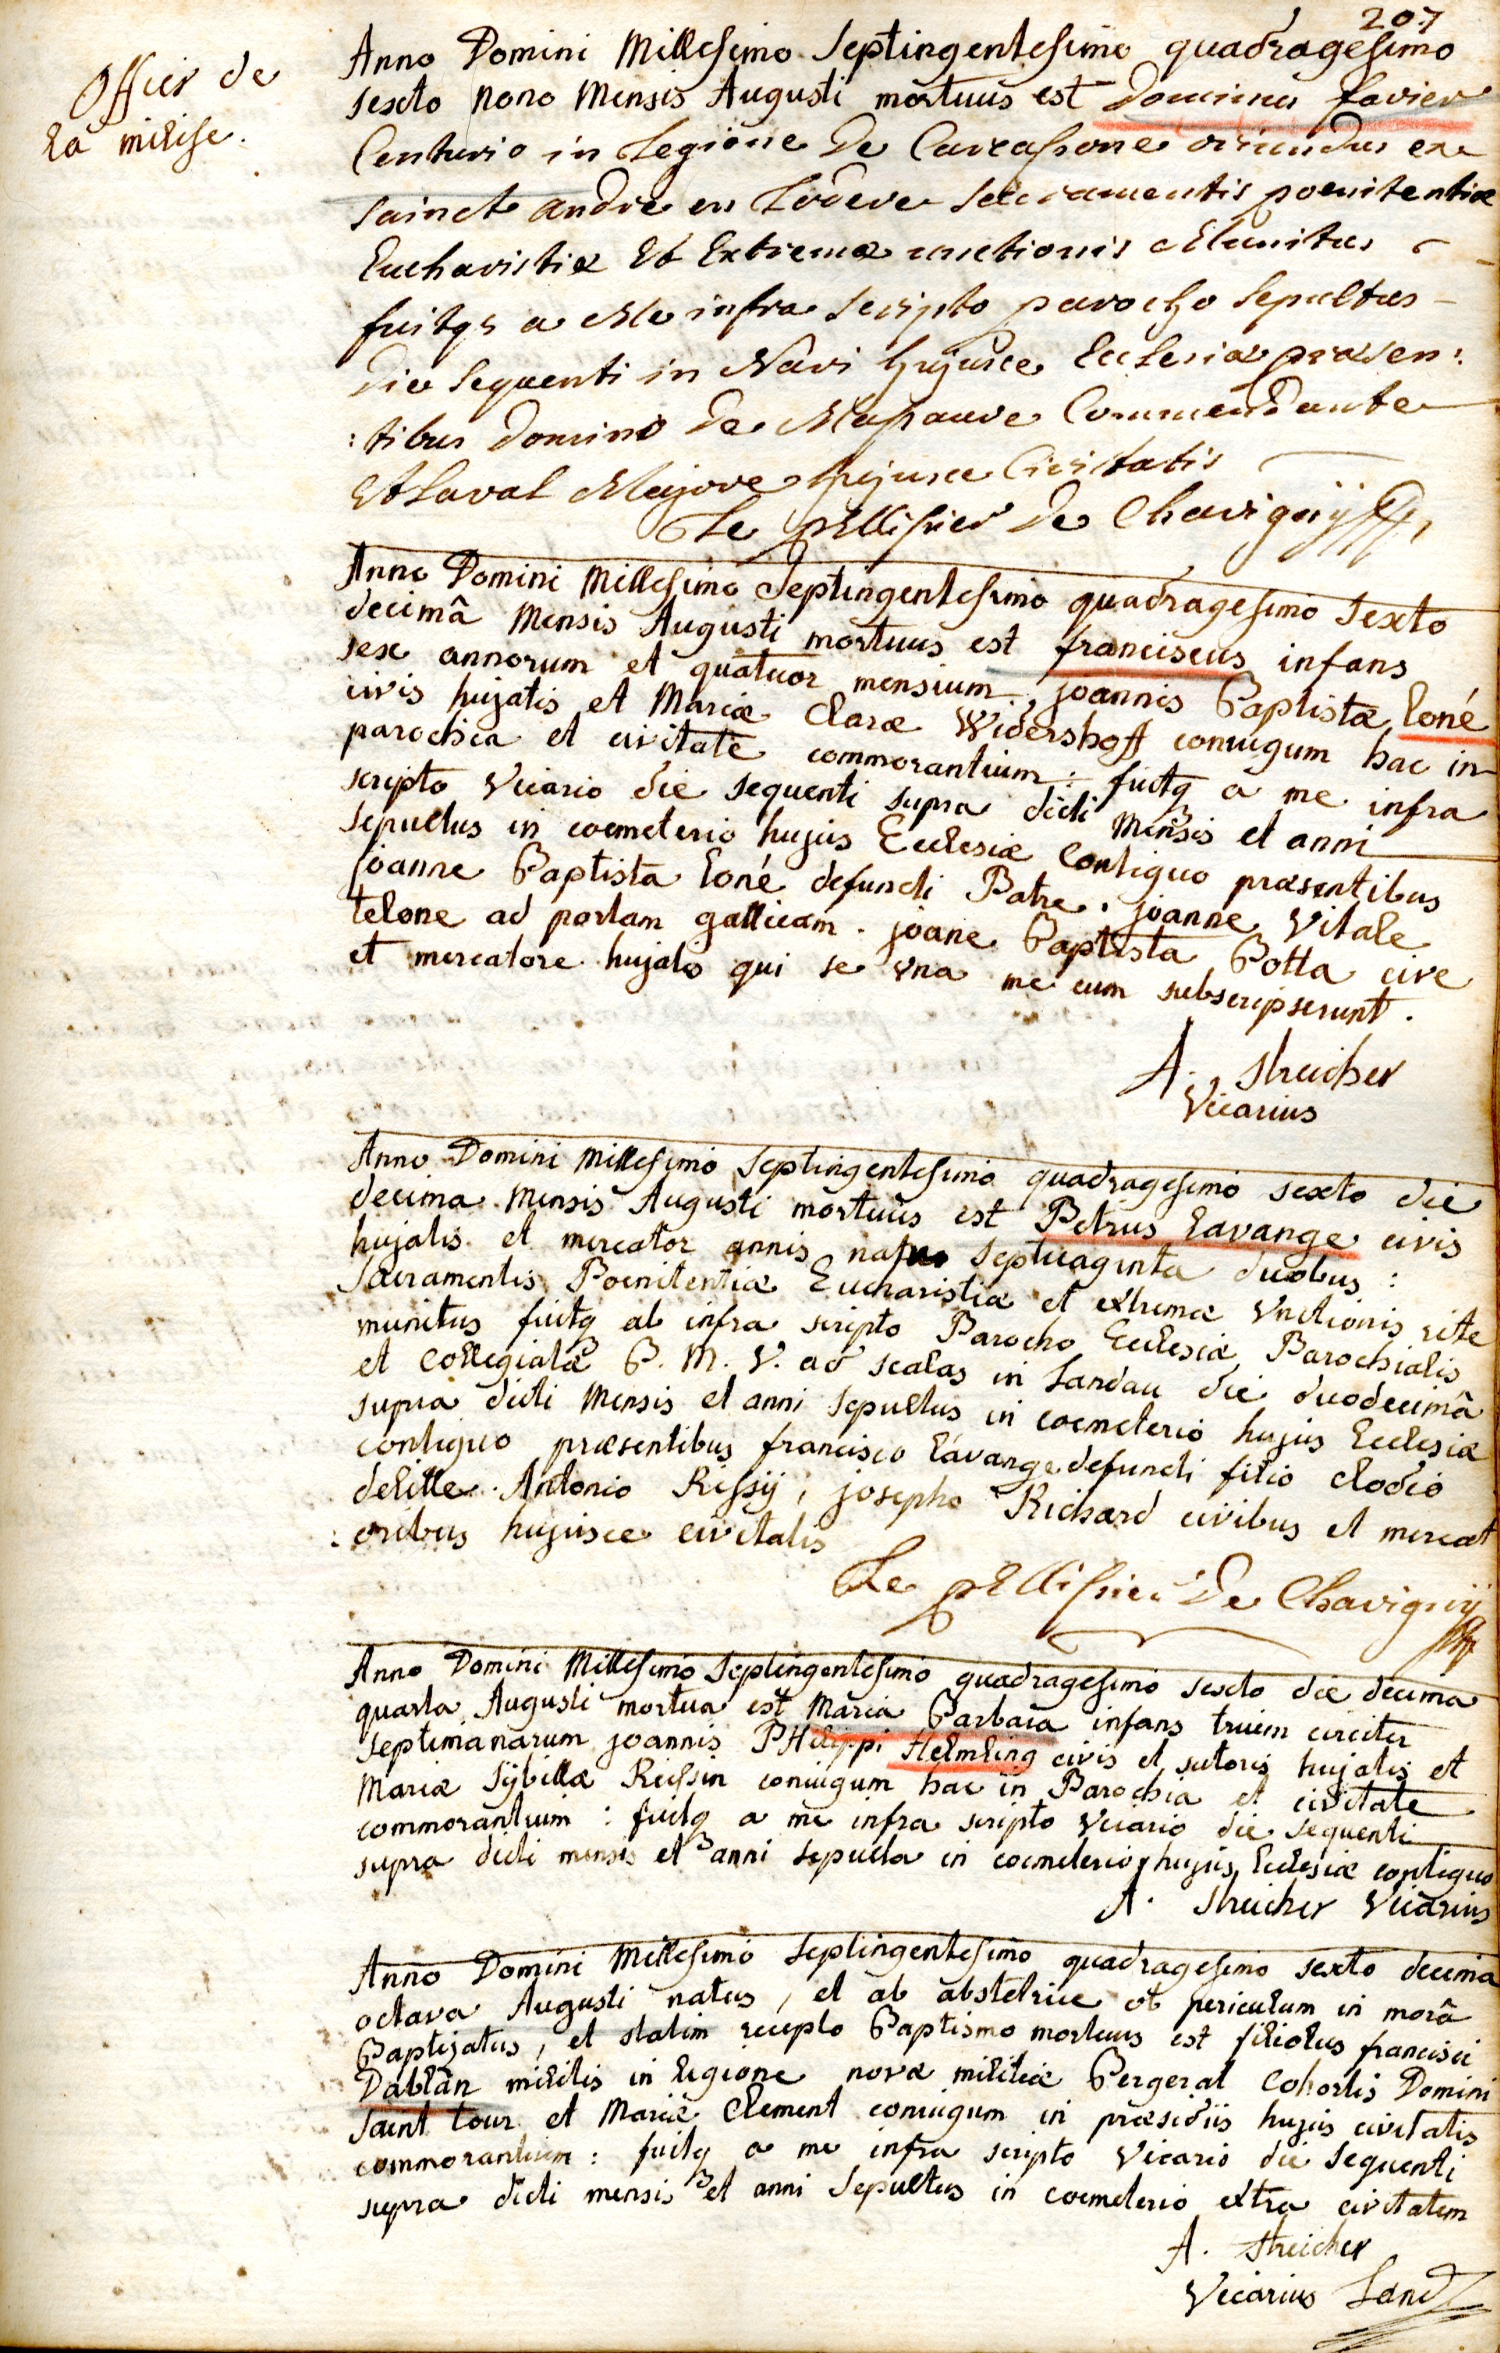 207
Offier de
la milise.
Anno Domini Millesimo Septingentesimo quadragesimo
sexto nono Mensis Augusti mortuus est Dominus favier
Centurio in Legione De Carcassone oriundus ex
sainct andre en Lodeve sacramentis poenitentiæ
Eucharistiæ Et Extremæ unctionis Munitus
fuitqs a Me infra scripto parocho Sepultus
Die Sequenti in Navi hujusce Ecclesiæ præsen:
:tibus Domino De Commendante
Et Laval Majore hujusce Civitatis
Le pEllissier De Chavignÿ
Anno Domini Millesimo Septingentesimo quadragesimo sexto
decimâ Mensis Augusti mortuus est franciscus infans
sex annorum et quatuor mensium, joannis Baptistæ Loné
civis hujatis et Mariæ Claræ Widershoff coniugum hac in
parochia et civitate commorantium: fuitq a me infra
scripto Vicario die sequenti supra dicti Mensis et anni
sepultus in coemeterio hujus Ecclesiæ contiguo præsentibus
joanne Baptista Loné defuncti Patre. joanne Vitale
telone ad portam gallicam. joane Baptista Botta cive
et mercatore hujate qui se una me cum subscripserunt.
A. Streicher
Vicarius
Anno Domini Millesimo Septingentesimo quadragesimo sexto die
decima Mensis Augusti mortuus est Petrus Lavange civis
hujatis et mercator annis natus septuaginta duobus:
Sacramentis Poenitentiæ Eucharistiæ et extremæ Unctionis rite
munitus fuitq ab infra scripto Parocho Ecclesiæ Parochialis
et Collegiatæ B. M. V. ad scalas in Landau die duodecimâ
supra dicti Mensis et anni sepultus in coemeterio hujus Ecclesiæ
contiguo præsentibus francisco Lavange defuncti filio Clodio
delille. Antonio Rissÿ, josepho Richard civibus et mercat
:oribus hujusce civitatis
Le pEllissier De Chavignÿ
Anno Domini Millesimo Septingentesimo quadragesimo sexto die decima
quarta Augusti mortua est Maria Barbara infans trium circiter
septimanarum joannis PHilippi Helmling civis et sutoris hujatis et
Mariæ Sÿbillæ Reissin coniugum hac in Parochia et civitate
commorantium: fuitq a me infra scripto Vicario die sequenti
supra dicti mensis et anni sepulta in coemeterio hujus Ecclesiæ contiguo
A. Streicher Vicarius
Anno Domini Millesimo Septingentesimo quadragesimo sexto decima
octava Augusti natus, et ab obstetrice ob periculum in morâ
Baptizatus, et statim recepto Baptismo mortuus est filiolus francisci
Dablan militis in legione novæ militiæ Bergerat Cohortis Domini
saint tour et Mariæ Clement coniugum in præsidiis hujus civitatis
commorantium: fuitq a me infra scripto Vicario die sequenti
supra dicti mensis et anni sepultus in coemeterio extra civitatem
A. Streicher
Vicarius Land